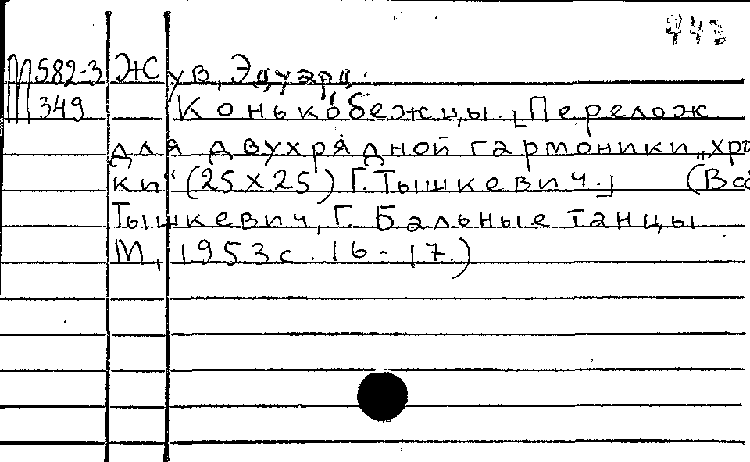 443
М582-3 Жув, Эдуард.
349 Конькобежцы. [Перелож
для двухрядной гармоники „хро
ки“ (25х25) Г. Тышкевич.] (В
Тышкевич, Г. Бальные танцы
М, 1953 с. 16-17.)